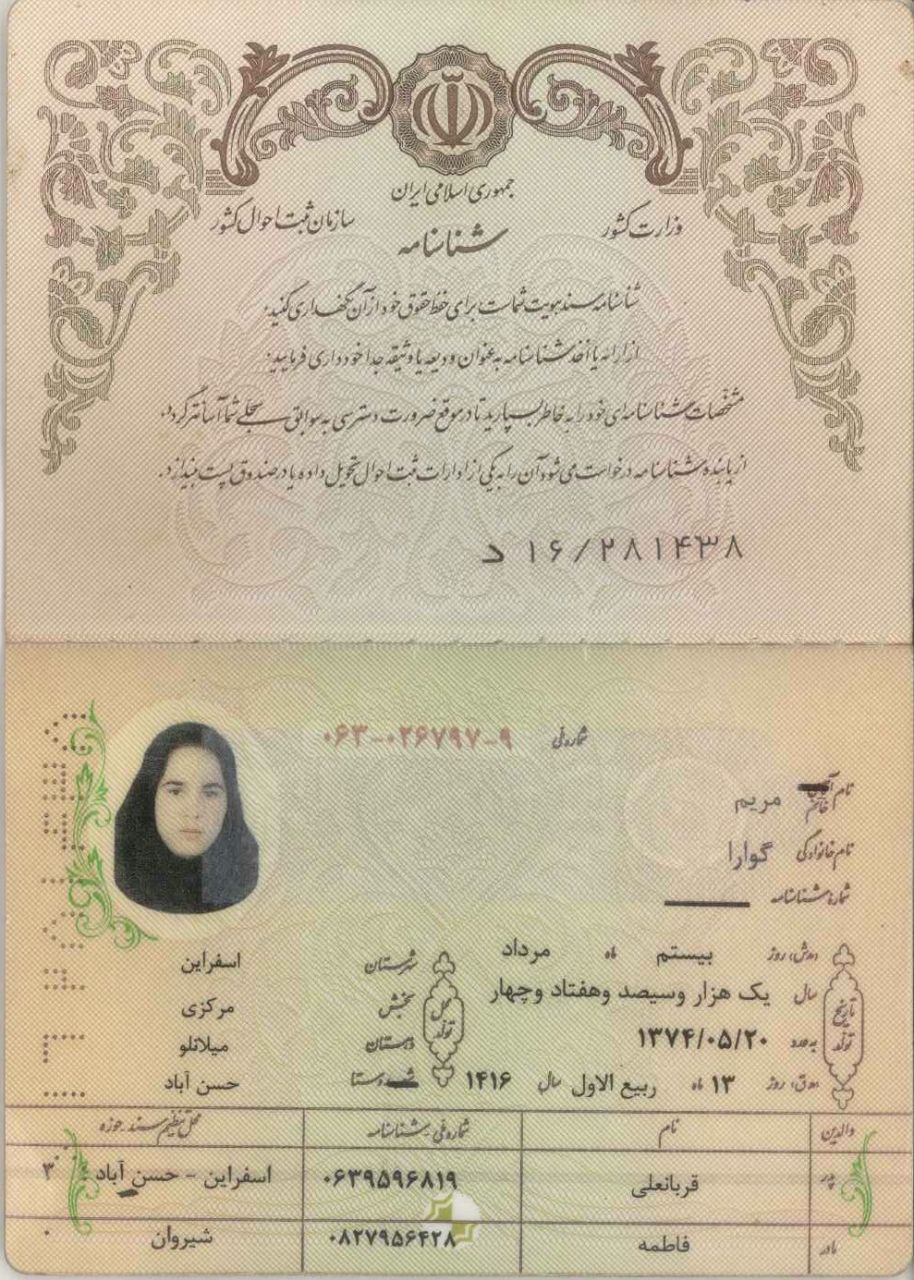 جمهوری اسلامی ایران
وزارت کشور
سازمان ثبت احوال کشور
شناسنامه
شناسنامه سند هویت شماست برای حفظ حقوق خود از آن نگهداری کنید.
از ارائه یا اخذ شناسنامه به عنوان ودیعه یا وثیقه جدا خودداری فرمایید.
مشخصات شناسنامه‌ای خود را به خاطر بسپارید تا در موقع ضرورت دسترسی به سوابق سجلی شما آسانتر گردد.
از یابنده شناسنامه درخواست می شود آن را به یکی از ادارات ثبت احوال تحویل داده یا در صندوق پست بیندازد.
د ۱۶/۲۸۱۴۳۸
شماره ملی ۰۶۳-۰۲۶۷۹۷-۹
نام خانم مریم
نام خانوادگی گوارا
شماره شناسنامه
تاریخ تولد
روز بیستم ماه مرداد
سال یک هزار وسیصد وهفتاد وچهار
به عدد ۱۳۷۴/۰۵/۲۰
روز ۱۳ ماه ربیع الاول سال ۱۴۱۶
محل تولد
شهرستان اسفراین
بخش مرکزی
دهستان میلانلو
روستا حسن آباد
والدین نام شماره ملی - شناسنامه محل تنظیم سند - حوزه
پدر قربانعلی ۰۶۳۹۵۹۶۸۱۹ اسفراین - حسن آباد ۳
مادر فاطمه ۰۸۲۷۹۵۶۴۲۸ شیروان ۰